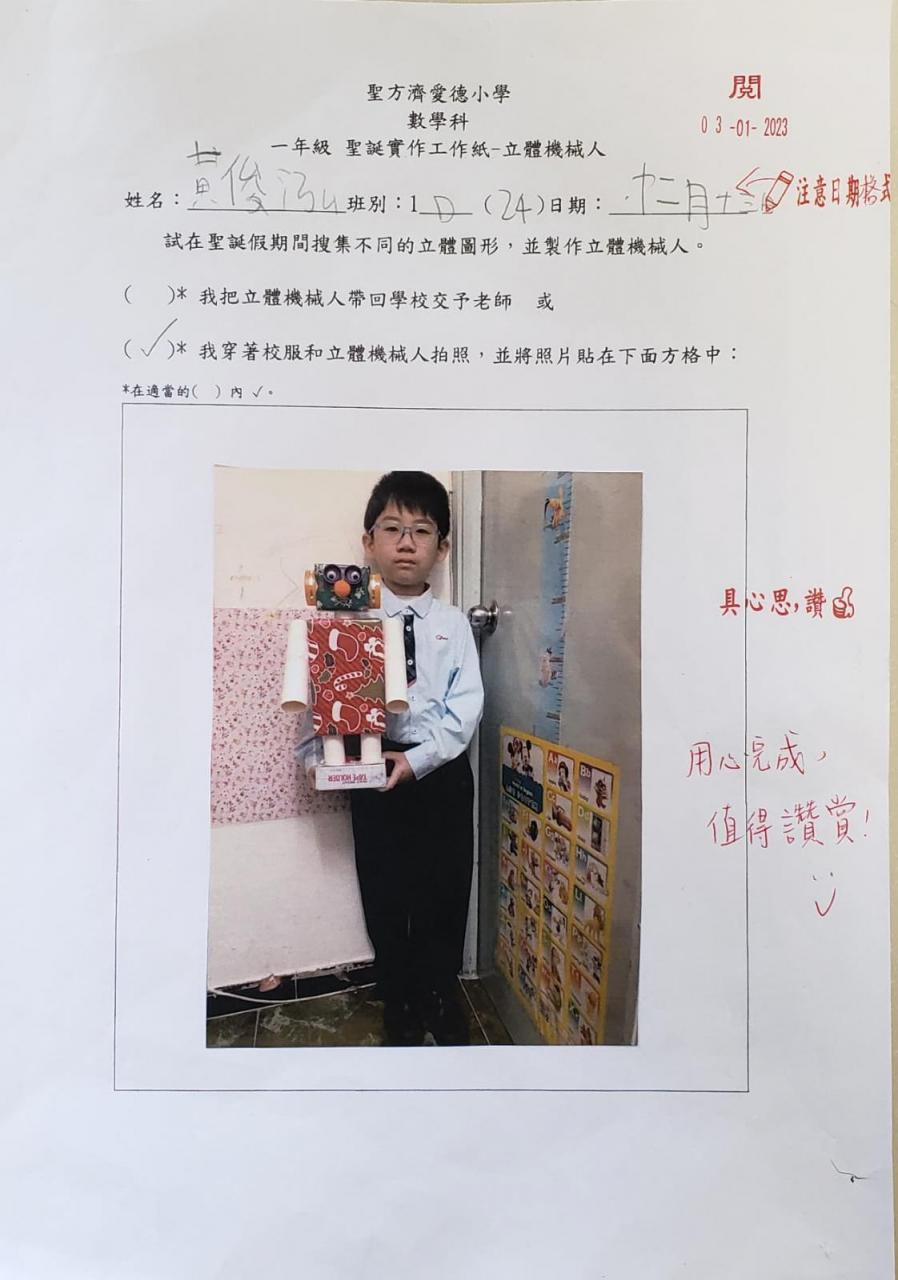 聖方濟愛德小學
閱
數學科
03-01-2023
一年級 聖誕實作工作紙-立體機械人
姓名：黃俊 班別：1 D (24) 日期：十二月十三
注意日期格式
試在聖誕假期間搜集不同的立體圖形，並製作立體機械人。
( )* 我把立體機械人帶回學校交予老師 或
(✓)* 我穿著校服和立體機械人拍照，並將照片貼在下面方格中：
*在適當的( ) 內 ✓。
具心思，讚
用心完成，
值得讚賞！
TAPE HOLDER
Aa
Bb